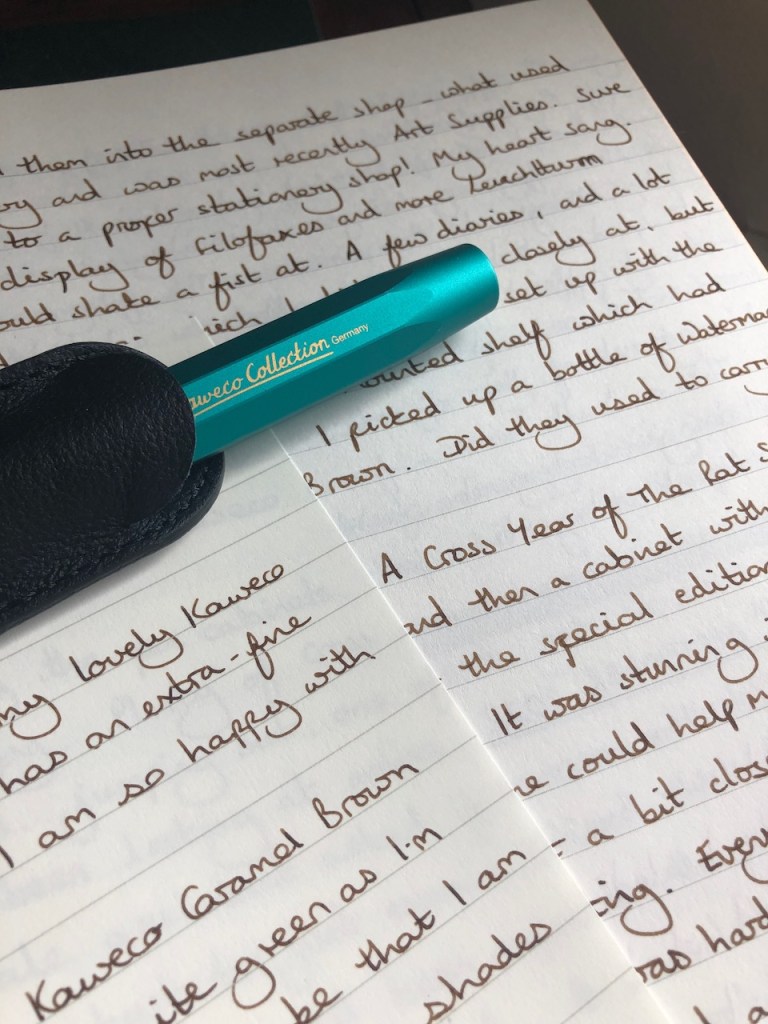 them into the separate shop - what used
ry and was most recently Art Supplies. Sure
to a proper stationery shop! My heart sang.
display of Filofaxes and more Leuchtturm
ould shake a fist at. A few diaries, and a lot
closely at, but
set up with the
ounted shelf which had
I picked up a bottle of Waterma
Brown. Did they used to carry
A Cross Year of The Rat S
nd then a cabinet with
the special edition
It was stunning
ne could help m
- a bit close
ing. Every
was hard
aweco Collection Germany
my lovely Kaweco
has an extra-fine
I am so happy with
Kaweco Caramel Brown
ite green as I'm
be that I am
shades